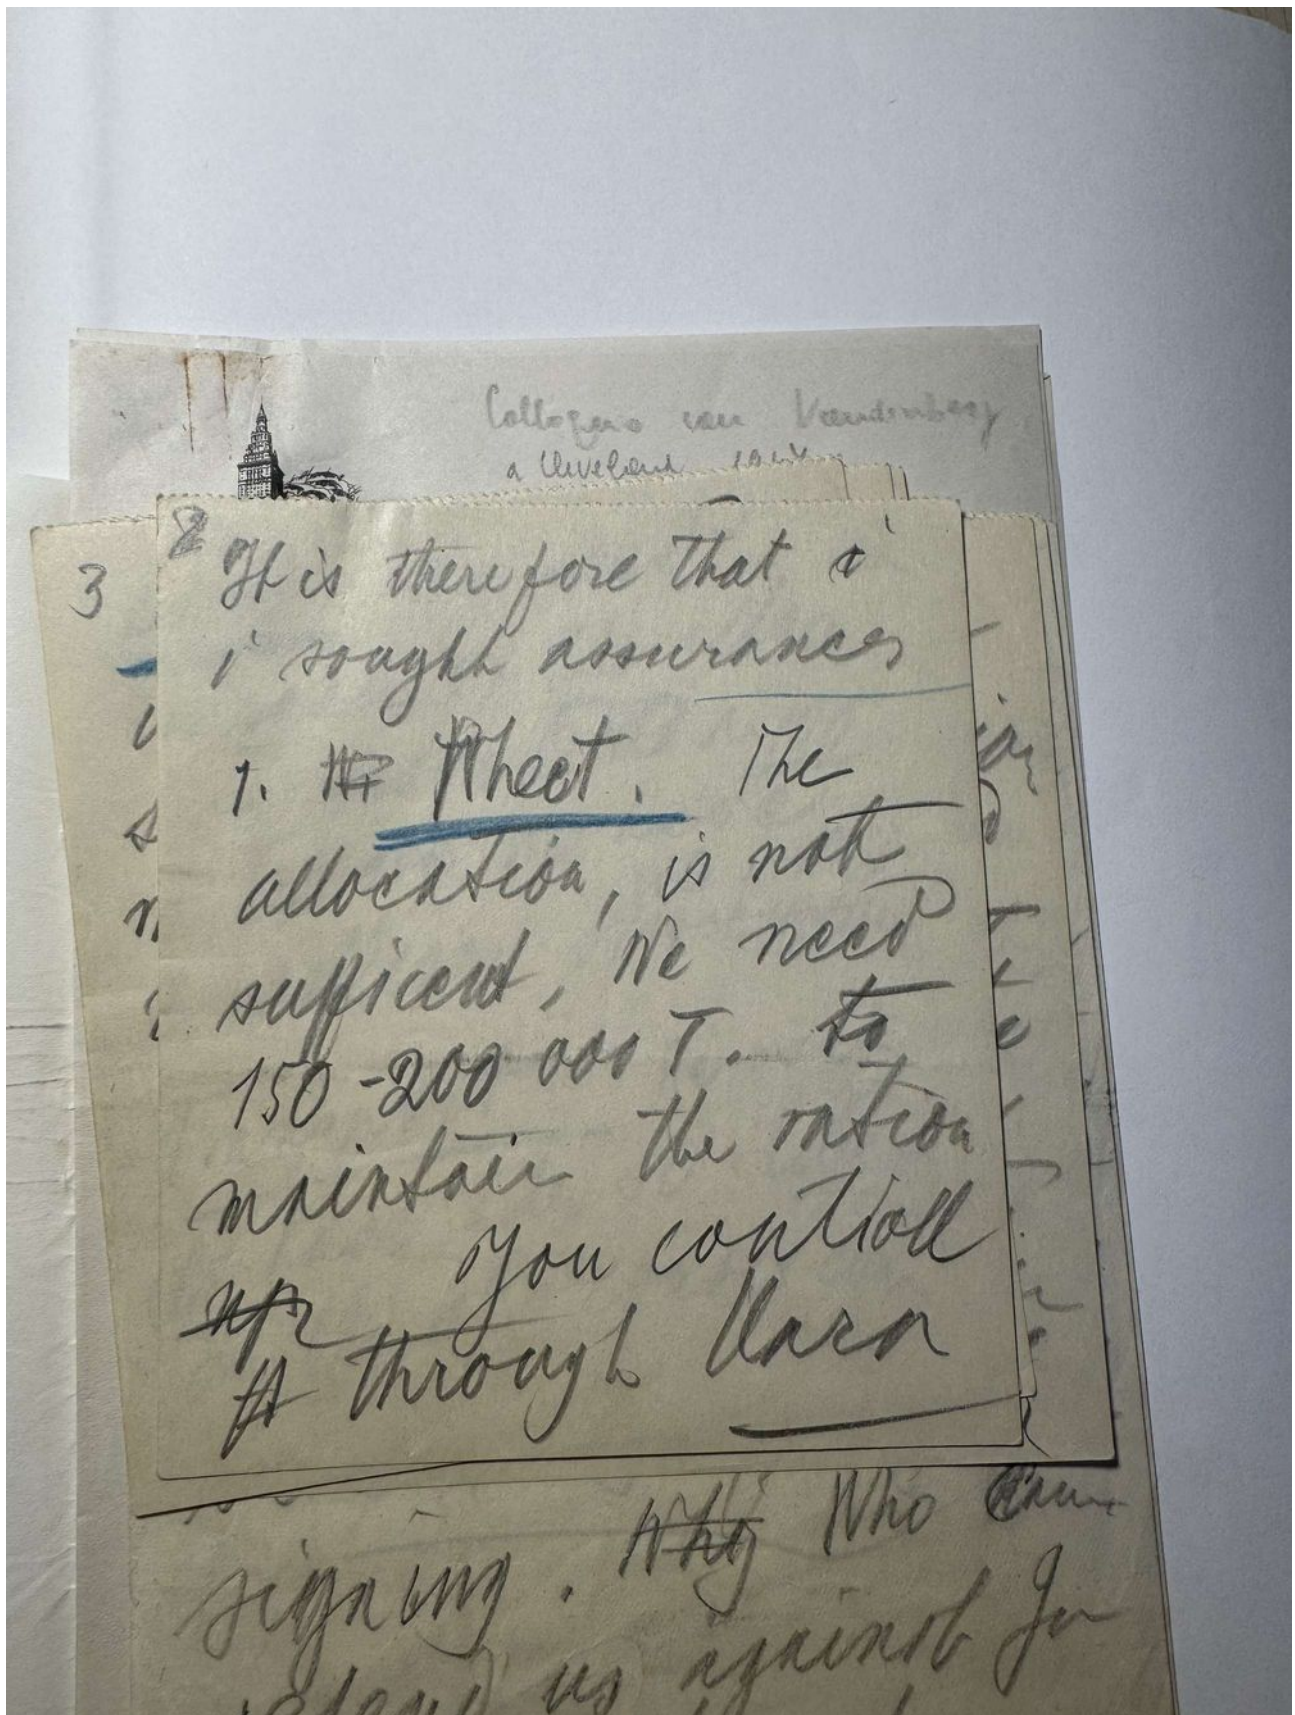 Colloquio con Vandenberg
a Cleveland 1947
3
2 It is therefore that i
i sought assurances
1. Wheat. The
allocation, is not
sufficent, We need
150-200 000 T. to
maintain the ration
You controll
through Unra
signing. Why Who can
us against